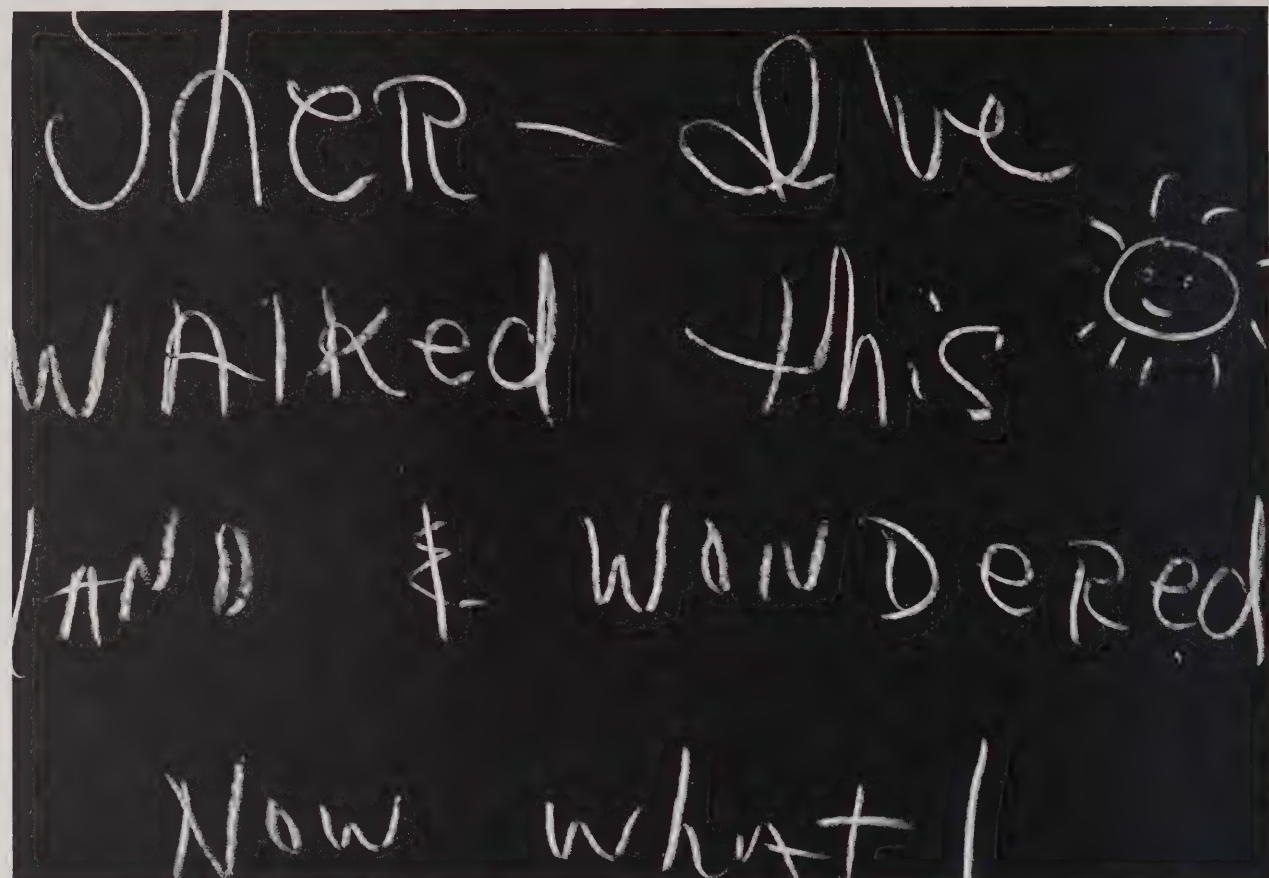 SHER - I've
WALKed this
LAND & WONDERed
Now what!